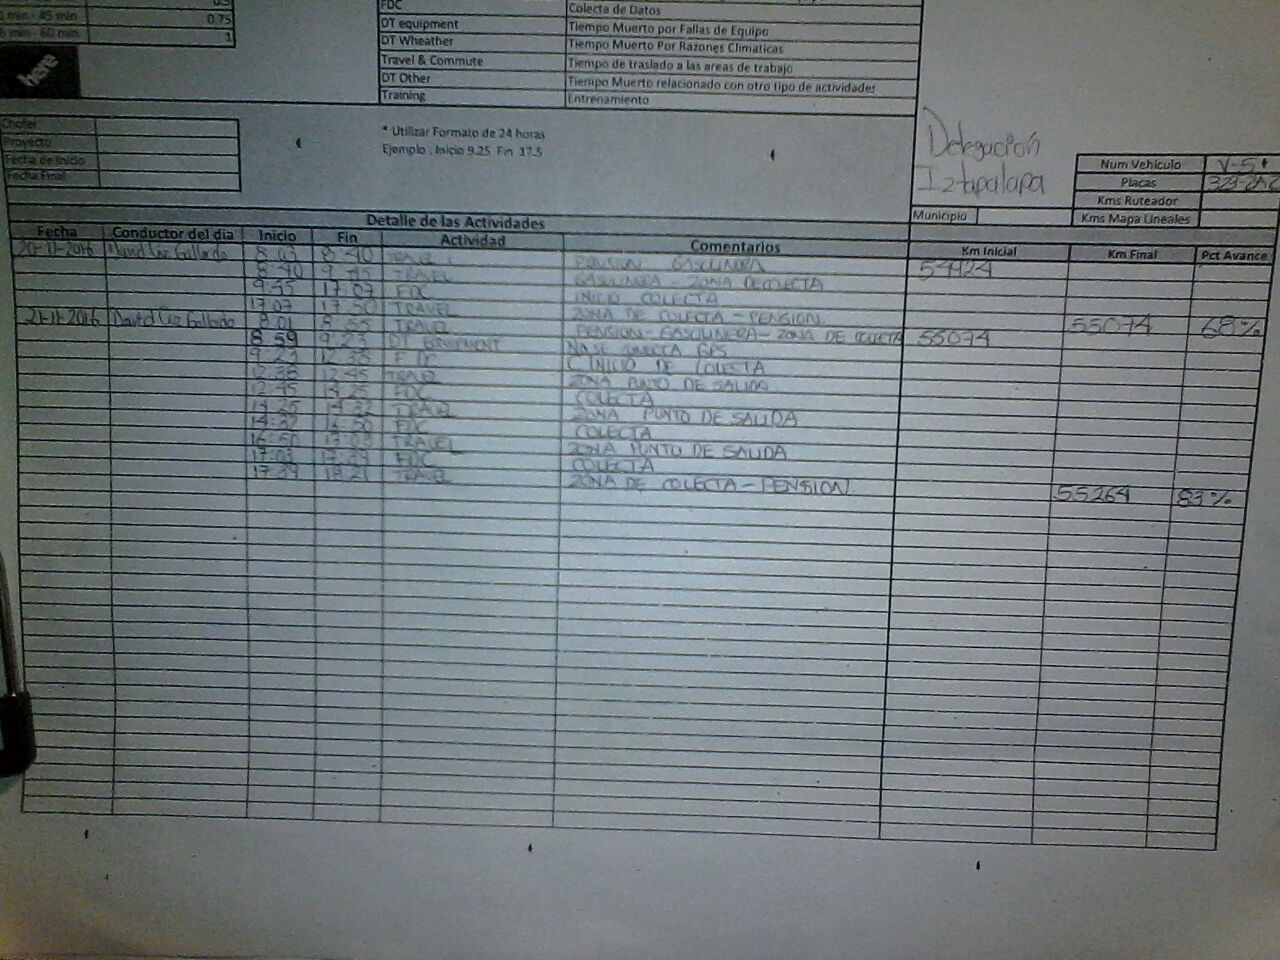 min - 45 min 0.75
min - 60 min 1
here
FDC Colecta de Datos
DT equipment Tiempo Muerto por Fallas de Equipo
DT Wheather Tiempo Muerto Por Razones Climaticas
Travel & Commute Tiempo de traslado a las areas de trabajo
DT Other Tiempo Muerto relacionado con otro tipo de actividades
Training Entrenamiento
Chofer
Proyecto
Fecha de Inicio
Fecha Final
* Utilizar Formato de 24 horas
Ejemplo . Inicio 9.25 Fin 17.5
Delegación
Iztapalapa
Num Vehículo V-5
Placas
Kms Ruteador
Kms Mapa Lineales
Municipio
Detalle de las Actividades
Fecha Conductor del día Inicio Fin Actividad Comentarios Km Inicial Km Final Pct Avance
20-11-2016 8:03 8:40 TRAVEL PENSION GASOLINERA 54924
8:40 9:45 TRAVEL GASOLINERA - ZONA DE COLECTA
9:45 17:07 FDC INICIO COLECTA
17:07 17:50 TRAVEL ZONA DE COLECTA - PENSION 55074 68%
21-11-2016 David Gallardo 8:01 TRAVEL PENSION - GASOLINERA - ZONA DE COLECTA 55074
8:59 9:23 DT EQUIPMENT NO SE CONECTA GPS
9:23 12:38 FDC INICIO DE COLECTA
12:38 12:45 TRAVEL ZONA PUNTO DE SALIDA
12:45 14:25 FDC COLECTA
14:25 14:32 TRAVEL ZONA PUNTO DE SALIDA
14:32 16:50 FDC COLECTA
16:50 17:03 TRAVEL ZONA PUNTO DE SALIDA
17:03 17:39 FDC COLECTA
17:39 18:21 TRAVEL ZONA DE COLECTA - PENSION 55264 83%